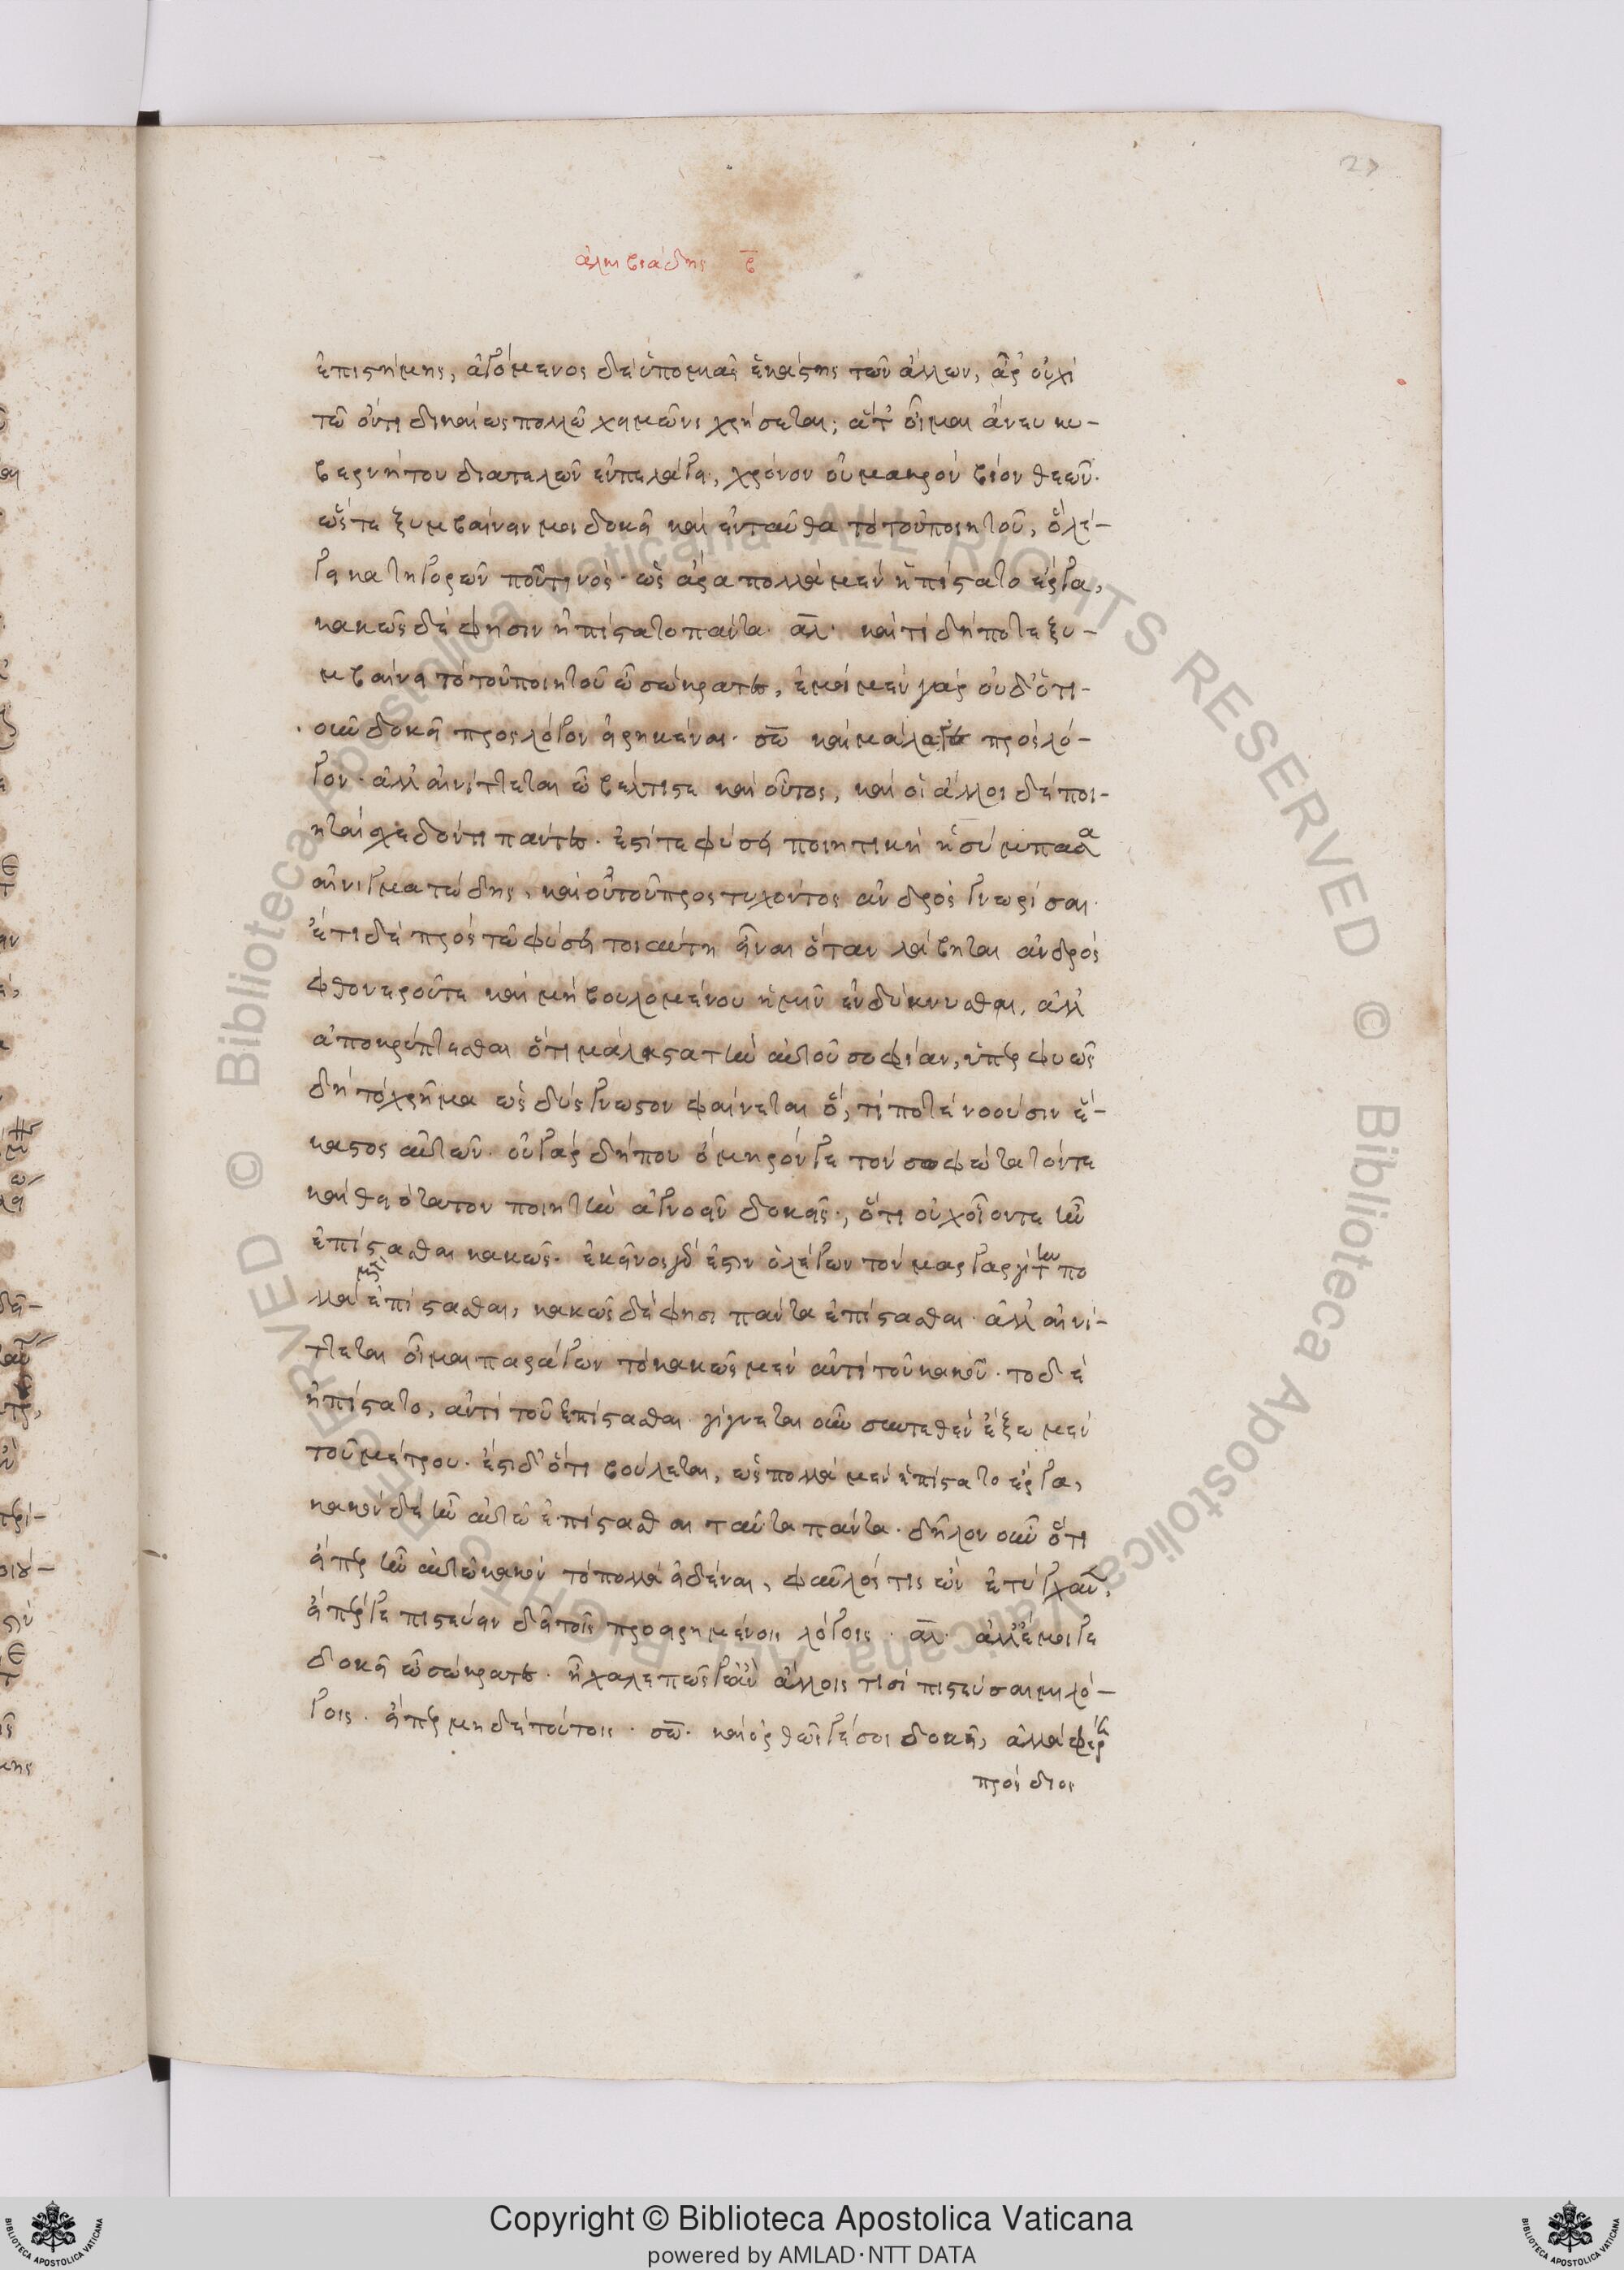 27
ἀλκιβιάδης β̅
ἐπιστήμης, ἀγόμενος δὲ ὑπὸ μιᾶς ἑκάστης τῶν ἄλλων, ἆρ' οὐχὶ
τῶ ὄντι δικαίως πολλῶ χειμῶνι χρήσεται; ἅτ' οἶμαι ἄνευ κυ-
βερνήτου διατελῶν ἐν πελάγει, χρόνον οὐ μακρὸν βίον θεῶν.
ὥστε ξυμβαίνειν μοι δοκεῖ καὶ ἐνταῦθα τὸ τοῦ ποιητοῦ, ὃ λέ-
γει κατηγορῶν πού τινος. ὡς ἄρα πολλὰ μὲν ἠπίστατο ἔργα,
κακῶς δέ φησιν ἠπίστατο πάντα. αλ̅. καὶ τί δήποτε ξυ-
μβαίνει τὸ τοῦ ποιητοῦ ὦ σώκρατες, ἐμοὶ μὲν γὰρ οὐδ' ὁτι-
οῦν δοκεῖ πρὸς λόγον εἰρηκέναι. σω̅ καὶ μάλα γε πρὸς λό-
γον. ἀλλ' αἰνίττεται ὦ βέλτιστε καὶ οὗτος, καὶ οἱ ἄλλοι δὲ ποι-
ηταὶ σχεδόν τι πάντες. ἔστί τε φύσει ποιητικὴ ἡ σύμπασα
αἰνιγματώδης, καὶ οὐ τοῦ προστυχόντος ἀνδρὸς γνωρίσαι.
ἔτι δὲ πρὸς τῶ φύσει τοιαύτη εἶναι ὅταν λάβηται ἀνδρὸς
φθονεροῦ τε καὶ μὴ βουλομένου ἡμῖν ἐνδείκνυσθαι, ἀλλ'
ἀποκρύπτεσθαι ὅτι μάλιστα τὴν αὐτοῦ σοφίαν, ὑπερφυῶς
δὴ τὸ χρῆμα ὡς δύσγνωστον φαίνεται ὅ, τί ποτὲ νοοῦσιν ἕ-
καστος αὐτῶν. οὐ γὰρ δήπου ὅμηρόν γε τὸν σοφώτατόν τε
καὶ θειότατον ποιητὴν ἀγνοεῖν δοκεῖς, ὅτι οὐχ οἷόν τε ἦν
ἐπίστασθαι κακῶς. ἐκεῖνος γάρ ἐστιν ὁ λέγων τὸν μαργαρίτην πο
λλὰ μὲν ἐπίστασθαι, κακῶς δέ φησι πάντα ἐπίστασθαι. ἀλλ' αἰνί-
ττεται οἶμαι παράγων τὸ κακῶς μὲν ἀντὶ τοῦ κακοῦ. τὸ δὲ
ἠπίστατο, ἀντὶ τοῦ ἐπίστασθαι. γίγνεται οὖν συντεθὲν ἔξω μὲν
τοῦ μέτρου. ἔστι δ' ὅτι βούλεται, ὡς πολλὰ μὲν ἠπίστατο ἔργα,
κακὸν δὲ ἦν αὐτῶ ἐπίστασθαι ταῦτα πάντα. δῆλον οὖν ὅτι
εἴπερ ἦν αὐτῶ κακὸν τὸ πολλὰ εἰδέναι, φαῦλός τις ὢν ἐτύγχανεν,
εἴπερ γε πιστεύειν δεῖ τοῖς προειρημένοις λόγοις. αλ̅. ἀλλ' ἔμοιγε
δοκεῖ ὦ σώκρατες. ἦ χαλεπῶς γ' ἂν ἄλλοις τισὶ πιστεύσαιμι λό-
γοις. εἴπερ μηδὲ τούτοις. σω̅. καὶ ὀρθῶς γέ σοι δοκεῖ, ἀλλὰ φέρε
πρὸς διος